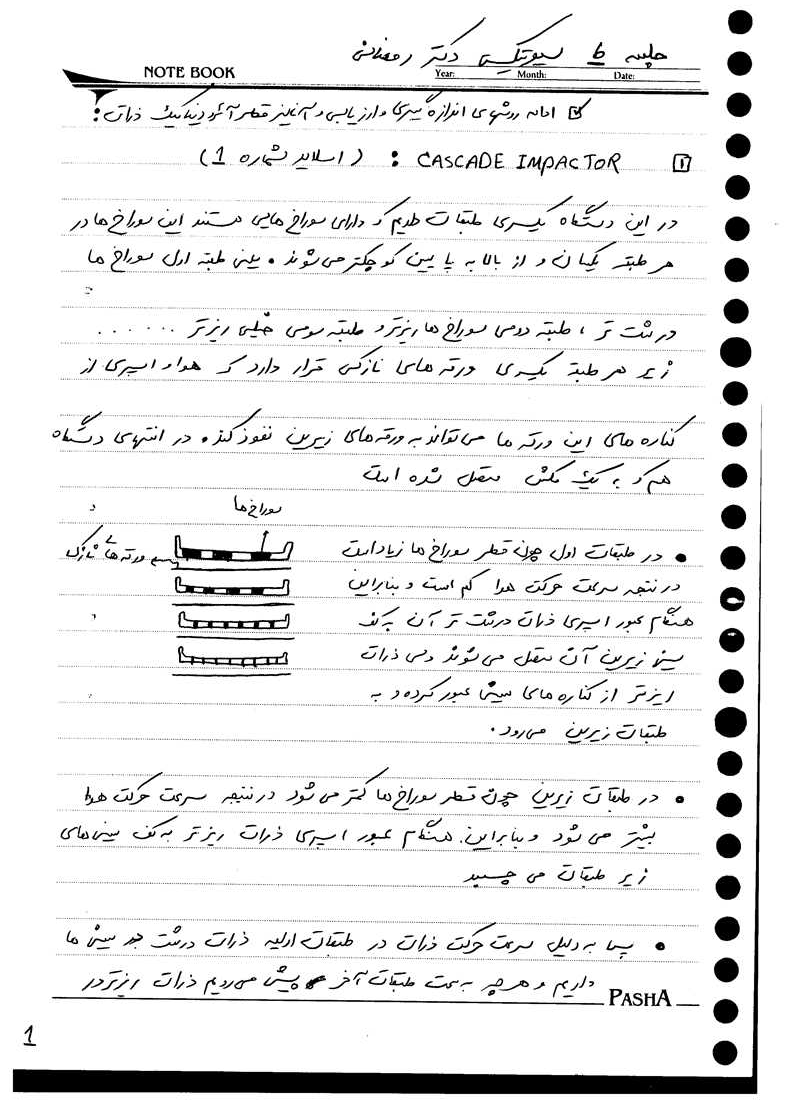 جلسه 6 سیوتیکس دکتر رمضانی
NOTE BOOK
Year: Month: Date:
ادامه روشهای اندازه گیری و ارزیابی و آنالیز قطر آئرودینامیک ذرات:
1 CASCADE IMPACTOR : (اسلاید شماره 1)
در این دستگاه یکسری طبقات داریم که دارای سوراخ هایی هستند این سوراخ ها در
هر طبقه یکسان و از بالا به پایین کوچکتر می شوند. یعنی طبقه اول سوراخ ها
درشت تر، طبقه دومی سوراخ ها ریزتر و طبقه سومی خیلی ریزتر ......
زیر هر طبقه یکسری ورقه های نازکی قرار دارد که هوا و اسپری از
کناره های این ورقه ها می تواند به ورقه های زیرین نفوذ کند. در انتهای دستگاه
هم که به یک مکش متصل شده است
سوراخ ها
ورقه های نازک
• در طبقات اول چون قطر سوراخ ها زیاد است
در نتیجه سرعت حرکت هوا کم است و بنابراین
هنگام عبور اسپری ذرات درشت تر آن به کف
سینی زیرین آن متصل می شوند ولی ذرات
ریزتر از کناره های سینی عبور کرده و به
طبقات زیرین می رود.
• در طبقات زیرین چون قطر سوراخ ها کمتر می شود در نتیجه سرعت حرکت هوا
بیشتر می شود و بنابراین هنگام عبور اسپری ذرات ریزتر به کف سینی های
زیر طبقات می چسبد
• پس به دلیل سرعت حرکت ذرات در طبقات اولیه ذرات درشت در سینی ها
داریم و هر چه به سمت طبقات آخر پیش می رویم ذرات ریزتر در
PASHA
1